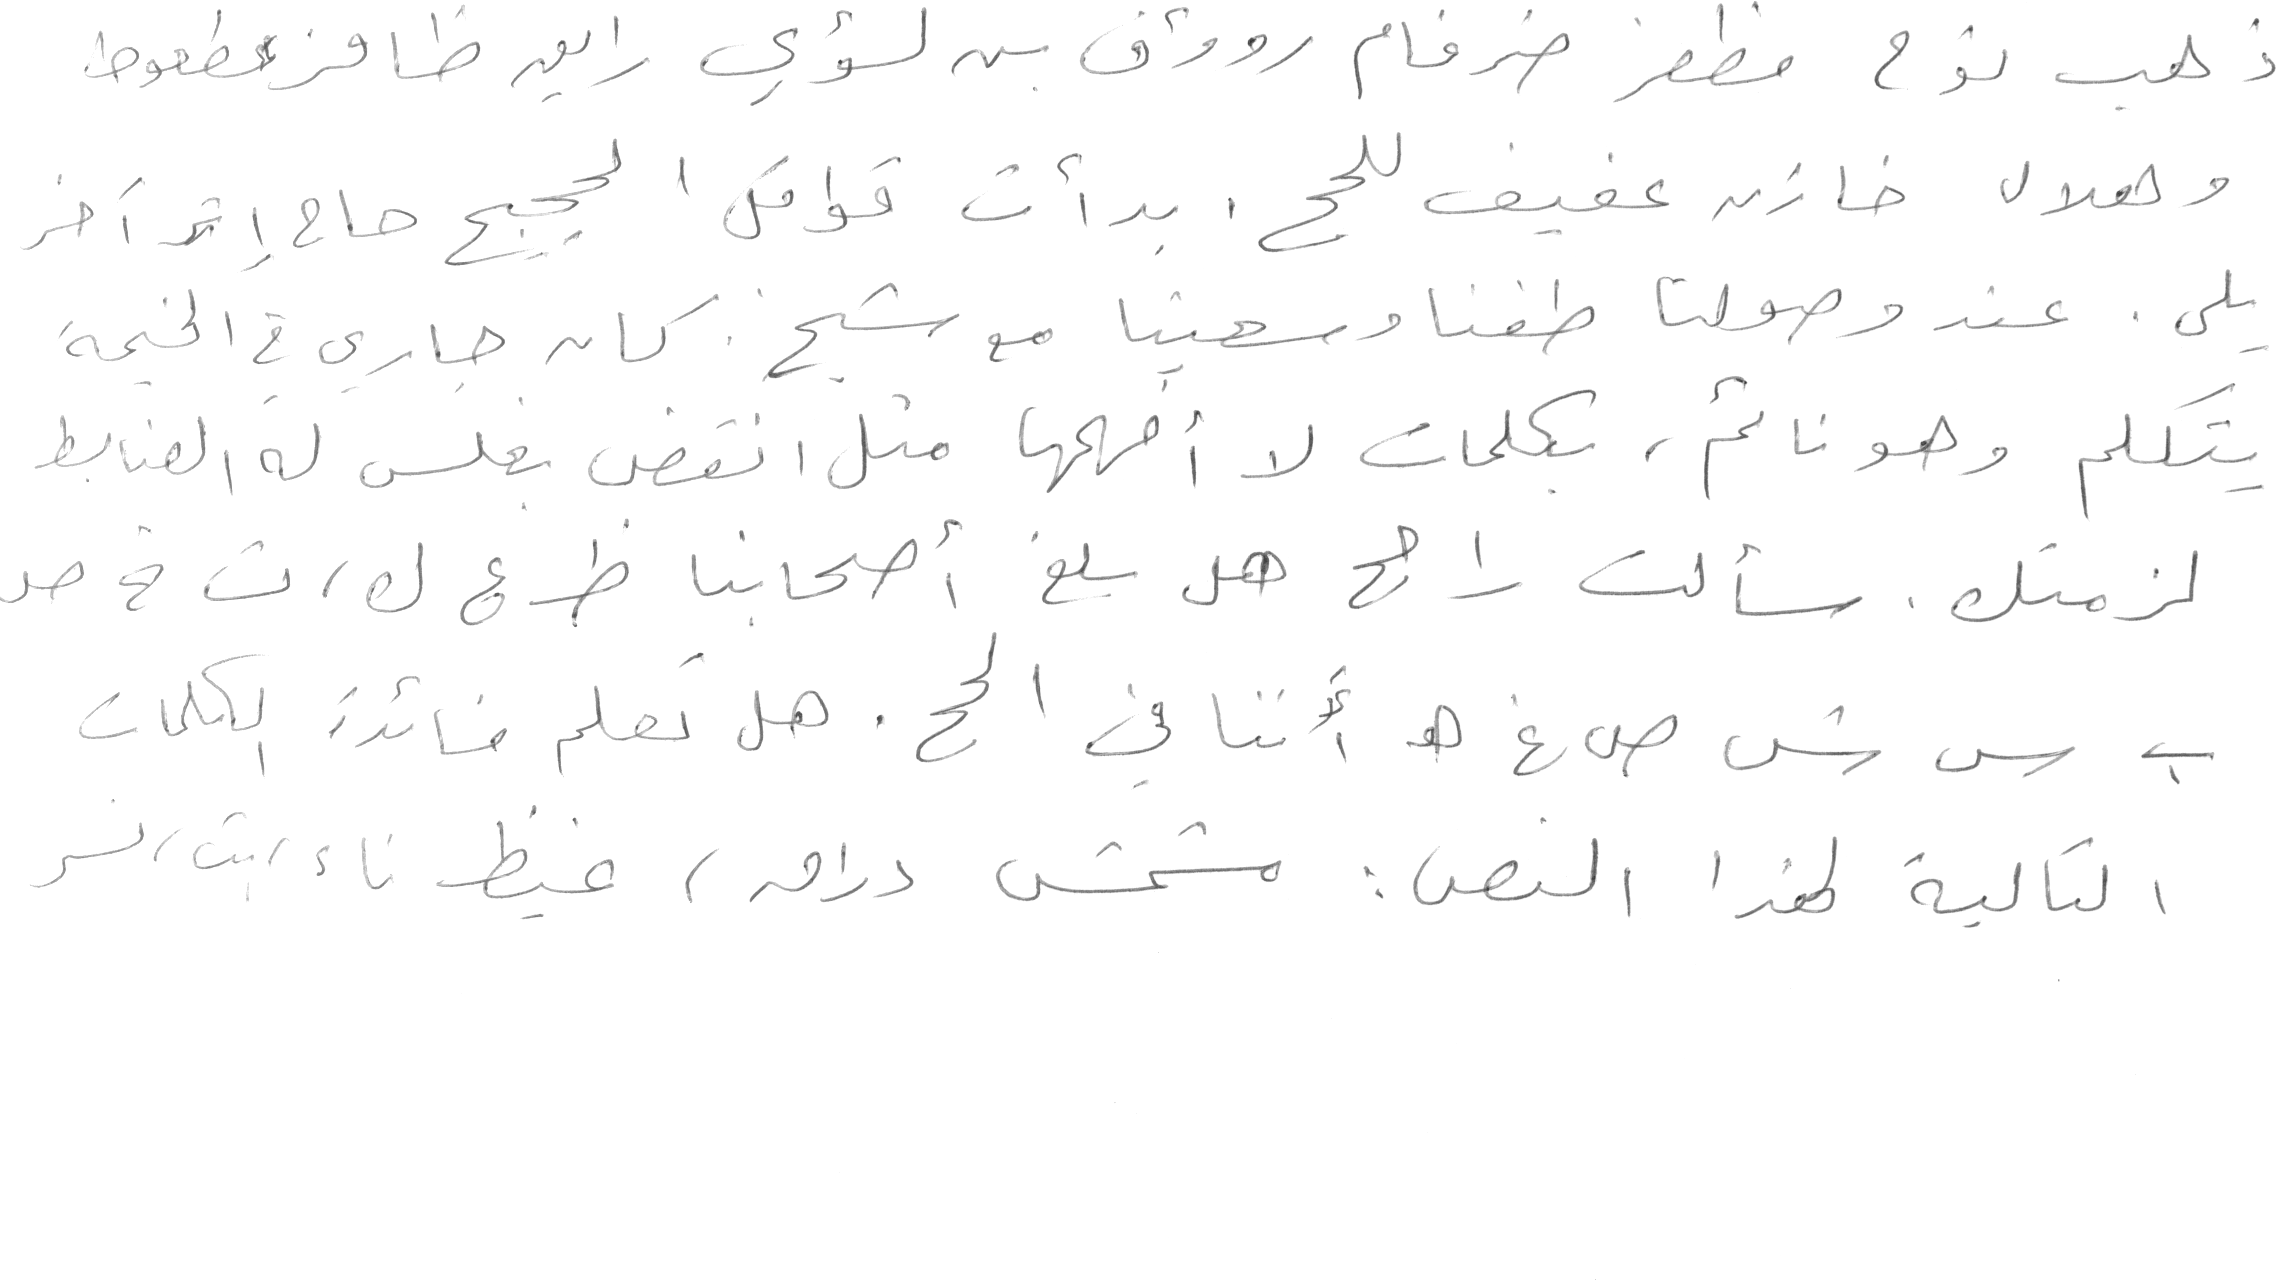 ذهب نوح مظفر ضرغام رؤوف بن لؤي رابع ظافر عطعوط
وهلال خازن عفيف للحج. بدأت قوافل الحجيج حاج إثر آخر
يلي. عند وصولنا طفنا وسعينا مع شيخ. كان جاري في الخيمة
يتكلم وهو نائم، بكلمات لا أفهمها مثل انقض بغلس له الضابط
لزمتك. سألت راجح هل بلغ أصحابنا ظ ع ك، ث خ ص
ب س ش ص غ ه أننا في الحج. هل تعلم فائدة الكلمات
التالية لهذا النص: مشمش دراق، غيظ ناء، بث، نسر